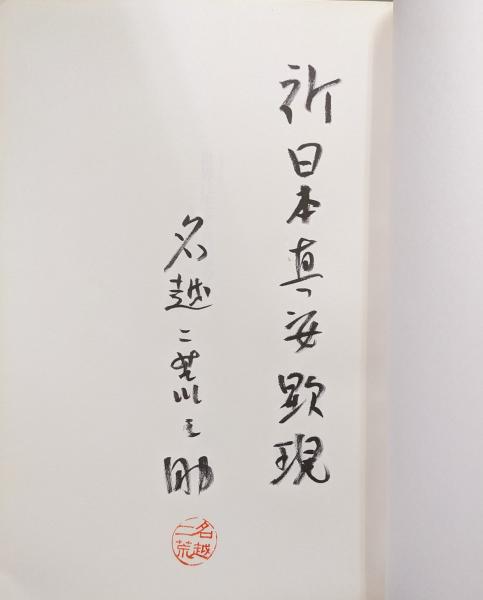 祈日本真姿顕現
名越二荒之助
名越
二荒